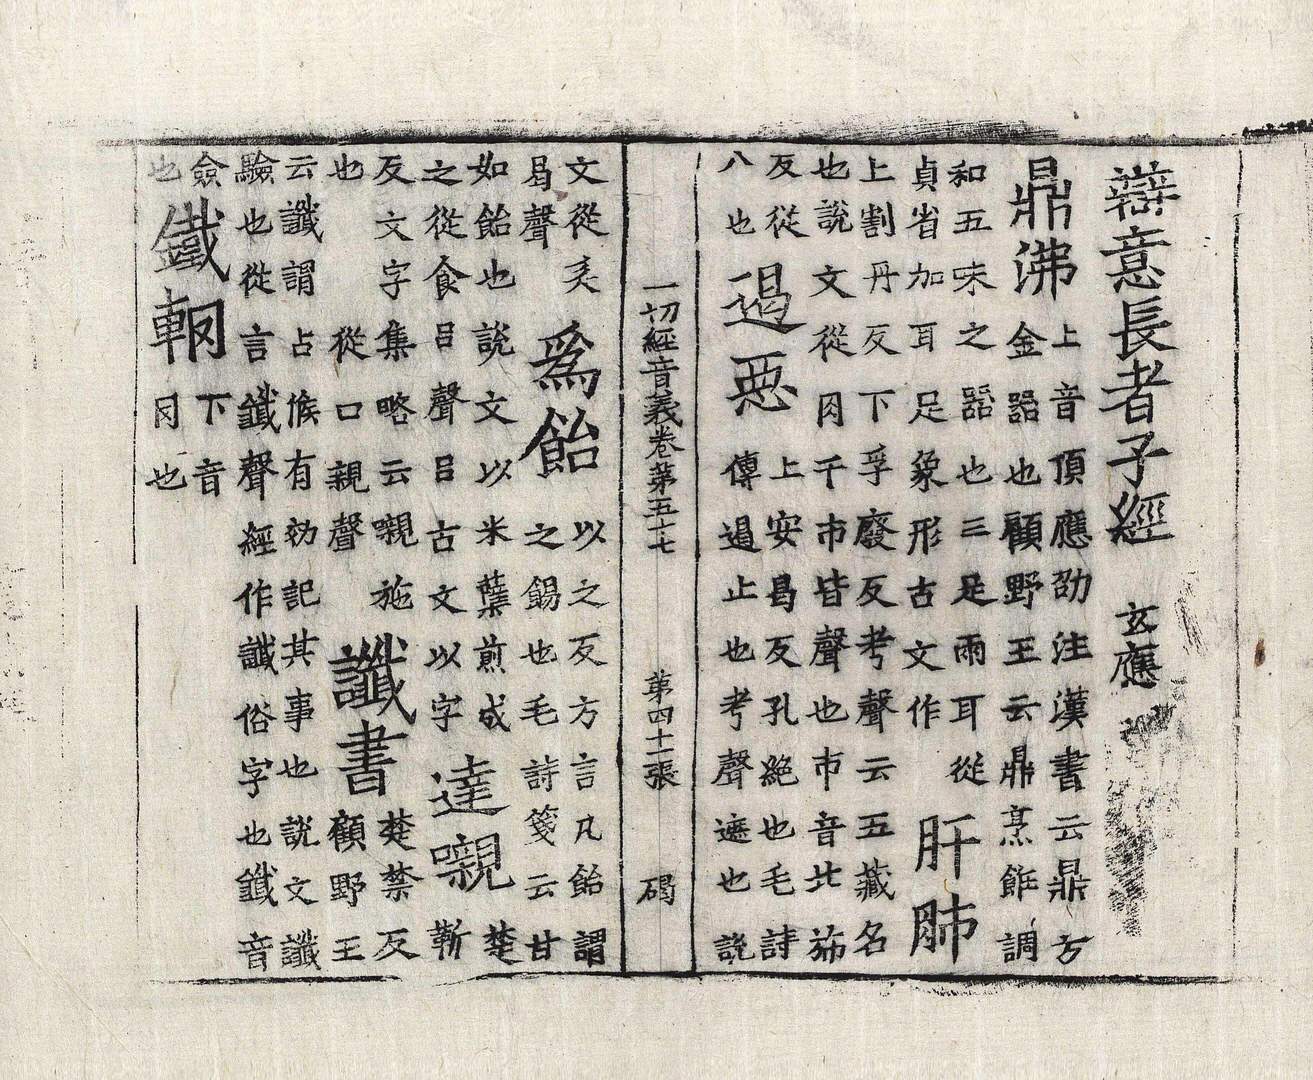 辯意長者子經 玄應
鼎沸 上音頂應劭注漢書云鼎方
金器也顧野王云鼎烹飪調
和五味之器也三足兩耳從
貞省加耳足象形古文作 肝肺
上割丹反下孚廢反考聲云五藏名
也說文從肉干巿皆聲也巿音北斾
反從
八也 遏惡 上安曷反孔絶也毛詩
傳遏止也考聲遮也說
一切經音義卷第五十七 第四十一張 碣
文從
曷聲 爲飴 以之反方言凡飴謂
之餳也毛詩箋云甘
如飴也說文以米櫱煎成
之從食㠯聲㠯古文以字 達嚫 楚
靳
反文字集略云嚫施
也 從口親聲 讖書 楚禁反
顧野王
云讖謂占候有効記其事也說文讖
驗也從言韱聲經作讖俗字也韱音
僉
也 鐵䩑 下音
肉也